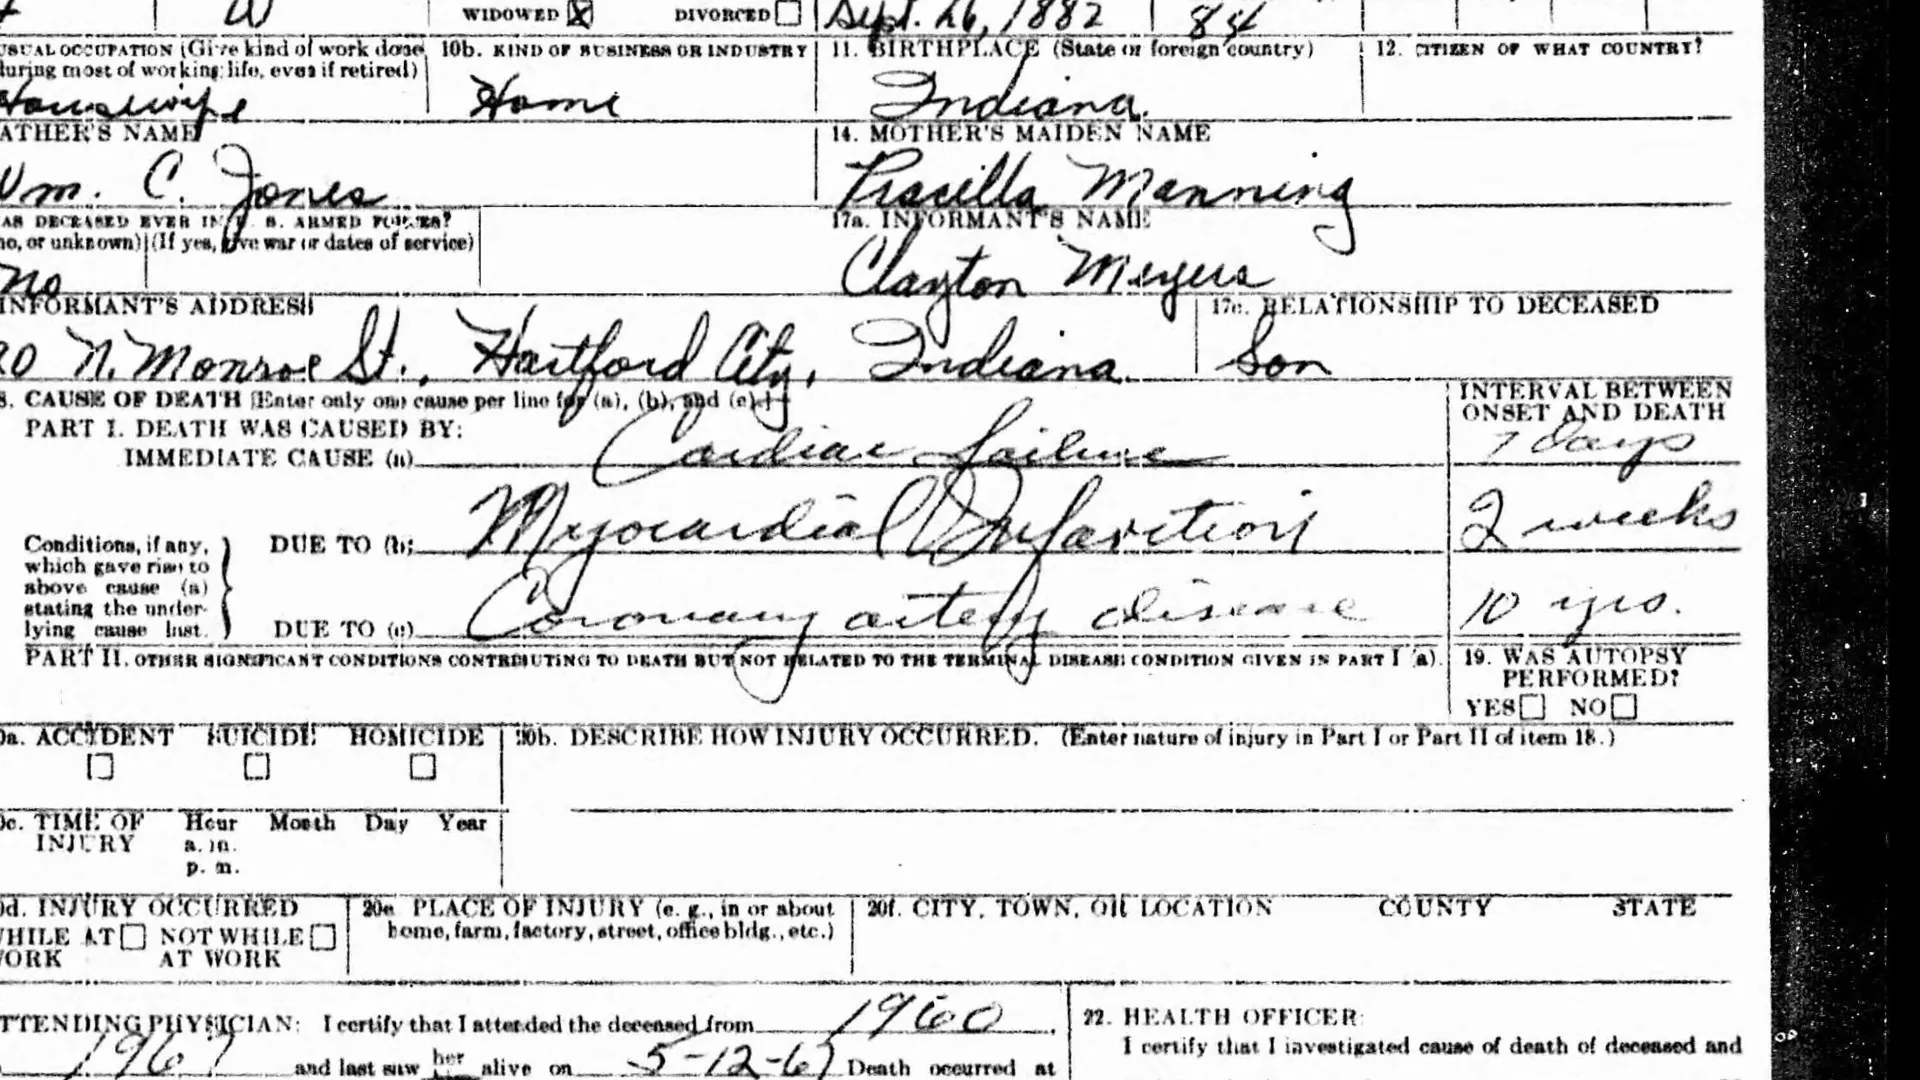 W WIDOWED ☒ DIVORCED ☐ Sept. 26, 1882 84
USUAL OCCUPATION (Give kind of work done 10b. KIND OF BUSINESS OR INDUSTRY 11. BIRTHPLACE (State or foreign country) 12. CITIZEN OF WHAT COUNTRY?
during most of working life, even if retired)
Housewife Home Indiana
FATHER'S NAME 14. MOTHER'S MAIDEN NAME
Wm. C. Jones Priscilla Manning
WAS DECEASED EVER IN U. S. ARMED FORCES? 17a. INFORMANT'S NAME
no, or unknown) (If yes, give war or dates of service)
No Clayton Meyers
INFORMANT'S ADDRESS 17c. RELATIONSHIP TO DECEASED
N. Monroe St., Hartford City, Indiana Son
8. CAUSE OF DEATH [Enter only one cause per line for (a), (b), and (c).] INTERVAL BETWEEN
ONSET AND DEATH
PART I. DEATH WAS CAUSED BY:
IMMEDIATE CAUSE (a) Cardiac failure 7 days
Conditions, if any, DUE TO (b) Myocardial Infarction 2 weeks
which gave rise to
above cause (a)
stating the under-
lying cause last. DUE TO (c) Coronary artery disease 10 yrs.
PART II. OTHER SIGNIFICANT CONDITIONS CONTRIBUTING TO DEATH BUT NOT RELATED TO THE TERMINAL DISEASE CONDITION GIVEN IN PART I (a). 19. WAS AUTOPSY
PERFORMED?
YES ☐ NO ☐
0a. ACCIDENT SUICIDE HOMICIDE 20b. DESCRIBE HOW INJURY OCCURRED. (Enter nature of injury in Part I or Part II of item 18.)
☐ ☐ ☐
0c. TIME OF Hour Month Day Year
INJURY a. m.
p. m.
0d. INJURY OCCURRED 20e. PLACE OF INJURY (e. g., in or about 20f. CITY, TOWN, OR LOCATION COUNTY STATE
WHILE AT ☐ NOT WHILE ☐ home, farm, factory, street, office bldg., etc.)
WORK AT WORK
ATTENDING PHYSICIAN: I certify that I attended the deceased from 1960, 22. HEALTH OFFICER:
1967 and last saw her alive on 5-12-67 Death occurred at I certify that I investigated cause of death of deceased and